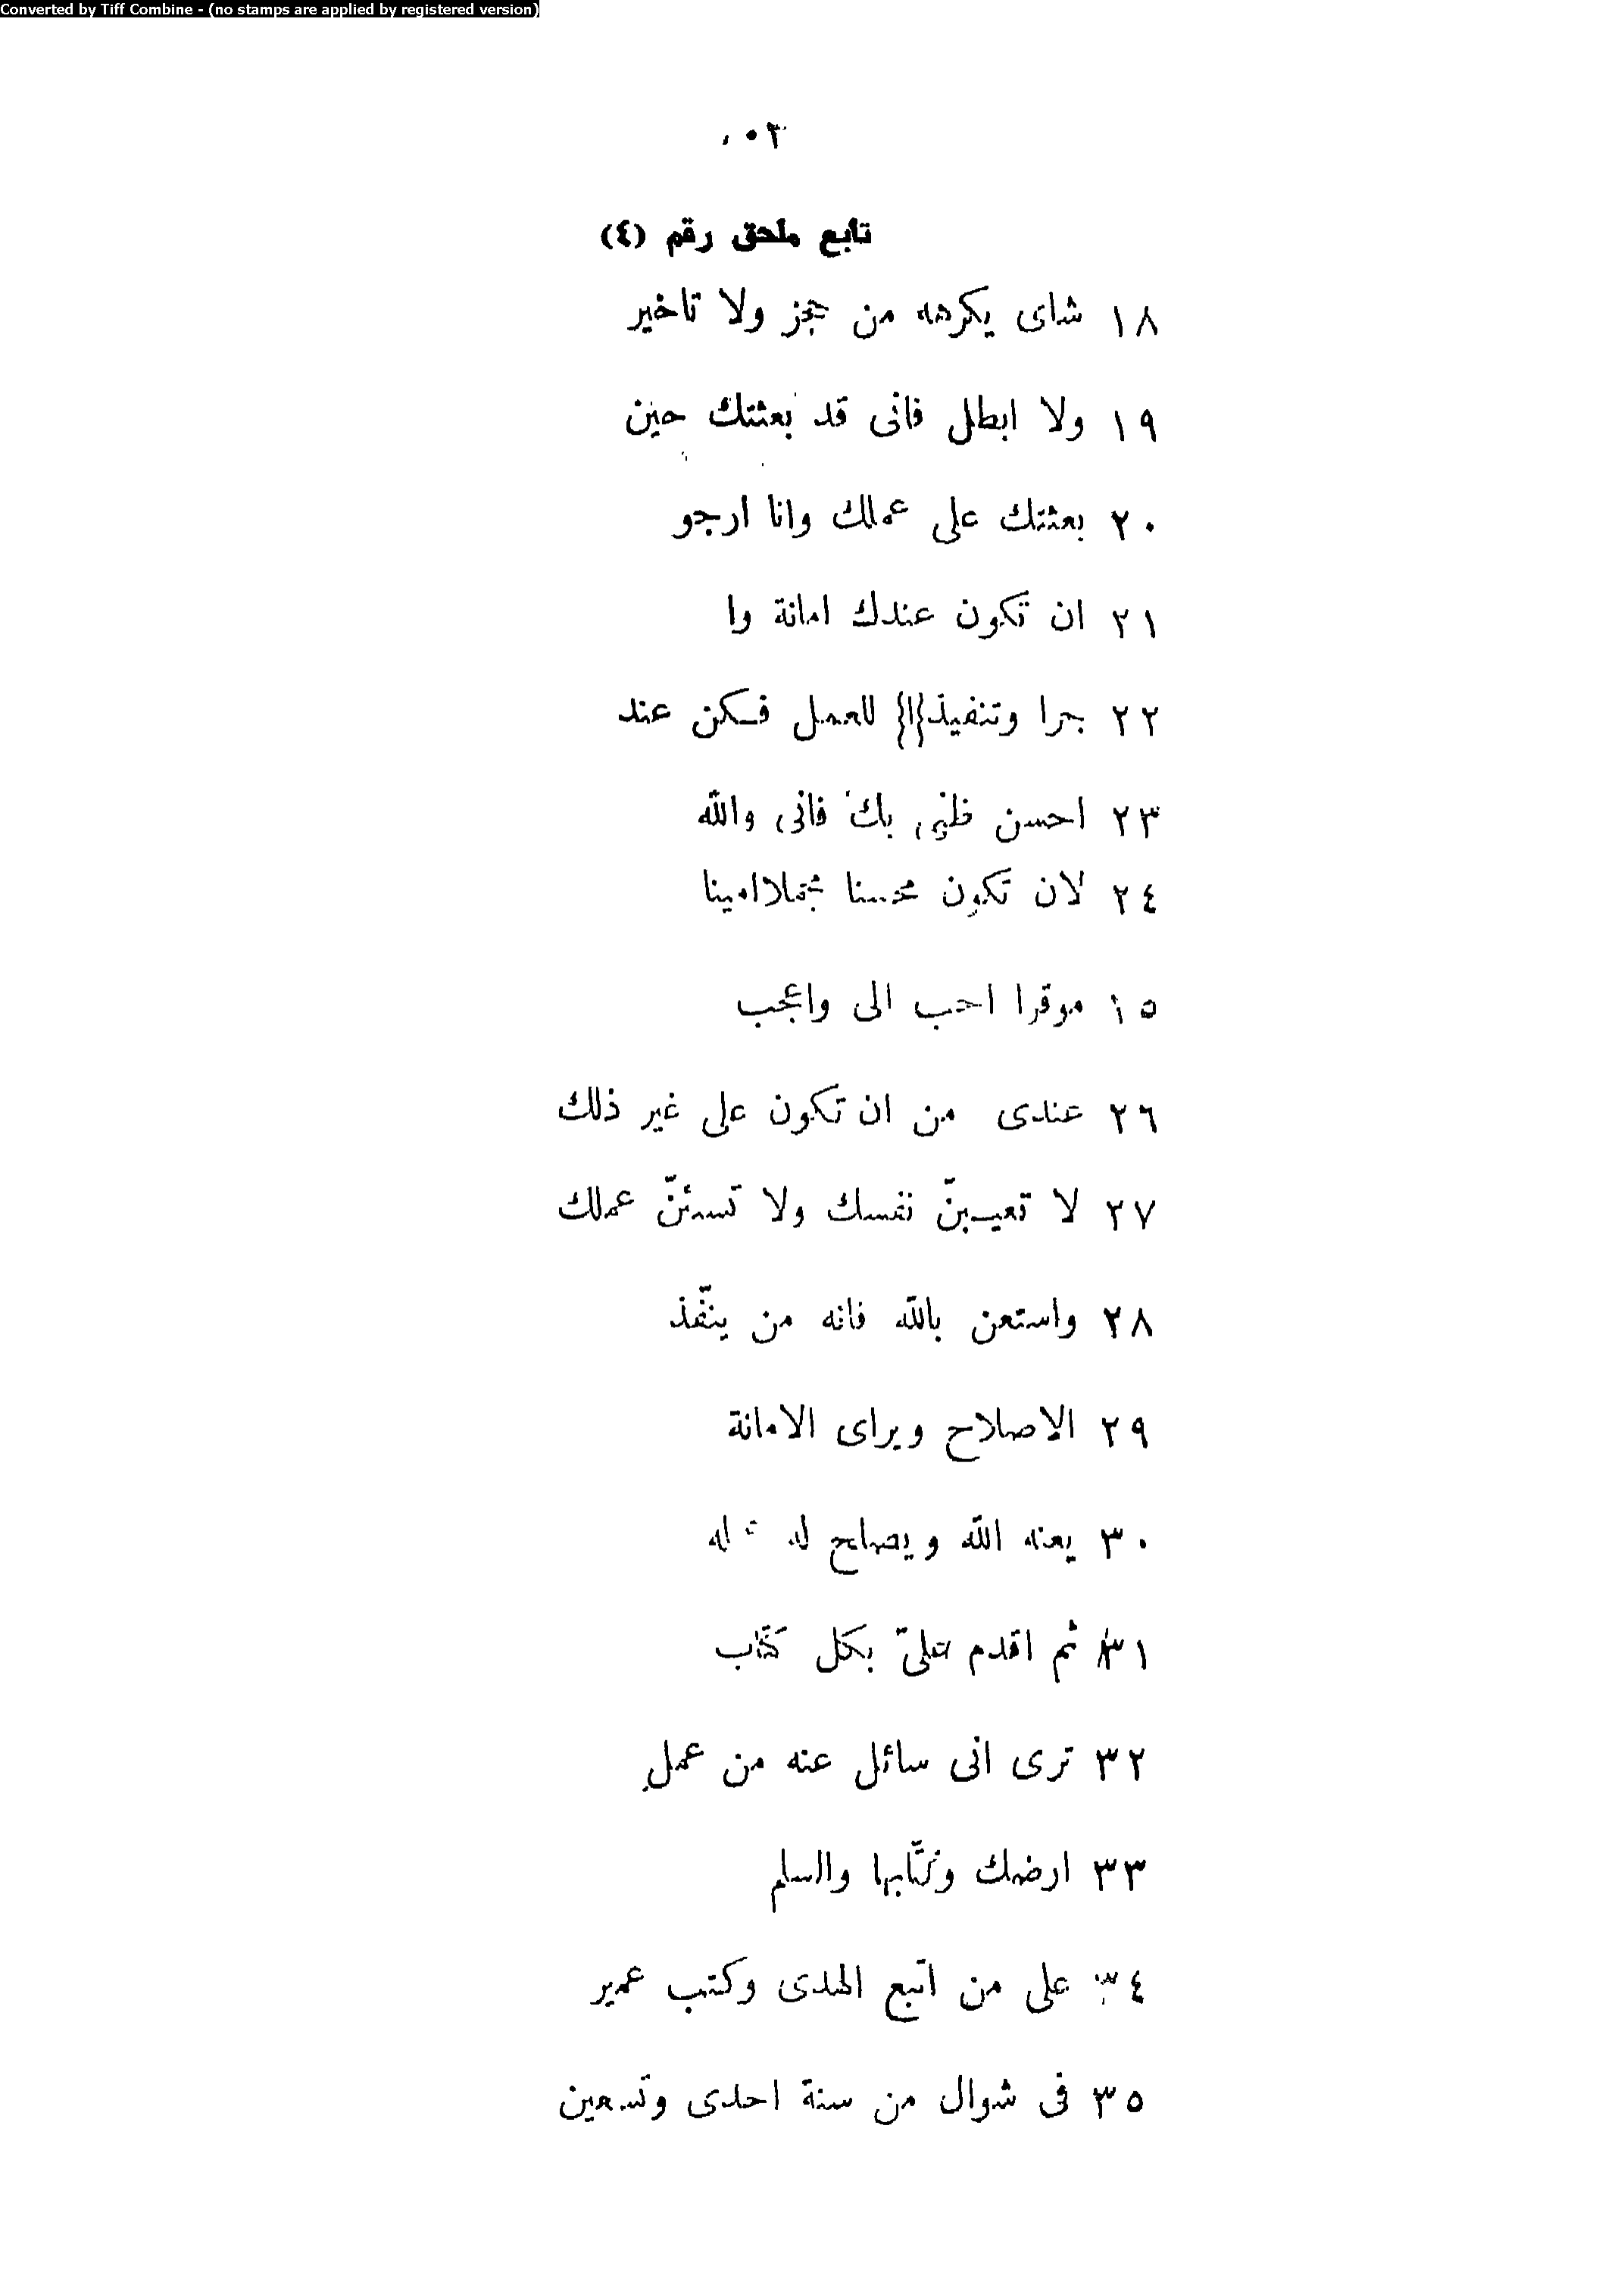 Converted by Tiff Combine - (no stamps are applied by registered version)
تابع ملحق رقم (٤)
١٨ شاى يكرهه من عجز ولا تاخير
١٩ ولا ابطل فانى قد بعثتك حين
٢٠ بعثتك على عملك وانا ارجو
٢١ ان تكون عندك امانة وا
٢٢ جرا وتنفيذ{ا} للعمل فكن عند
٢٣ احسن ظنى بك فانى والله
٢٤ لان تكون محسنا مجملا امينا
١٥ موقرا احب الى واعجب
٢٦ عندى من ان تكون على غير ذلك
٢٧ لا تعيبنّ نفسك ولا تسئنّ عملك
٢٨ واستعن بالله فانه من ينفّذ
٢٩ الاصلاح ويراى الامانة
٣٠ يعنه الله ويصلح له
٣١ ثم اقدم علىّ بكل كتاب
٣٢ ترى انى سائل عنه من عمل
٣٣ ارضك وكتّابها والسلم
٣٤ على من اتبع الهدى وكتب عمير
٣٥ فى شوال من سنة احدى وتسعين